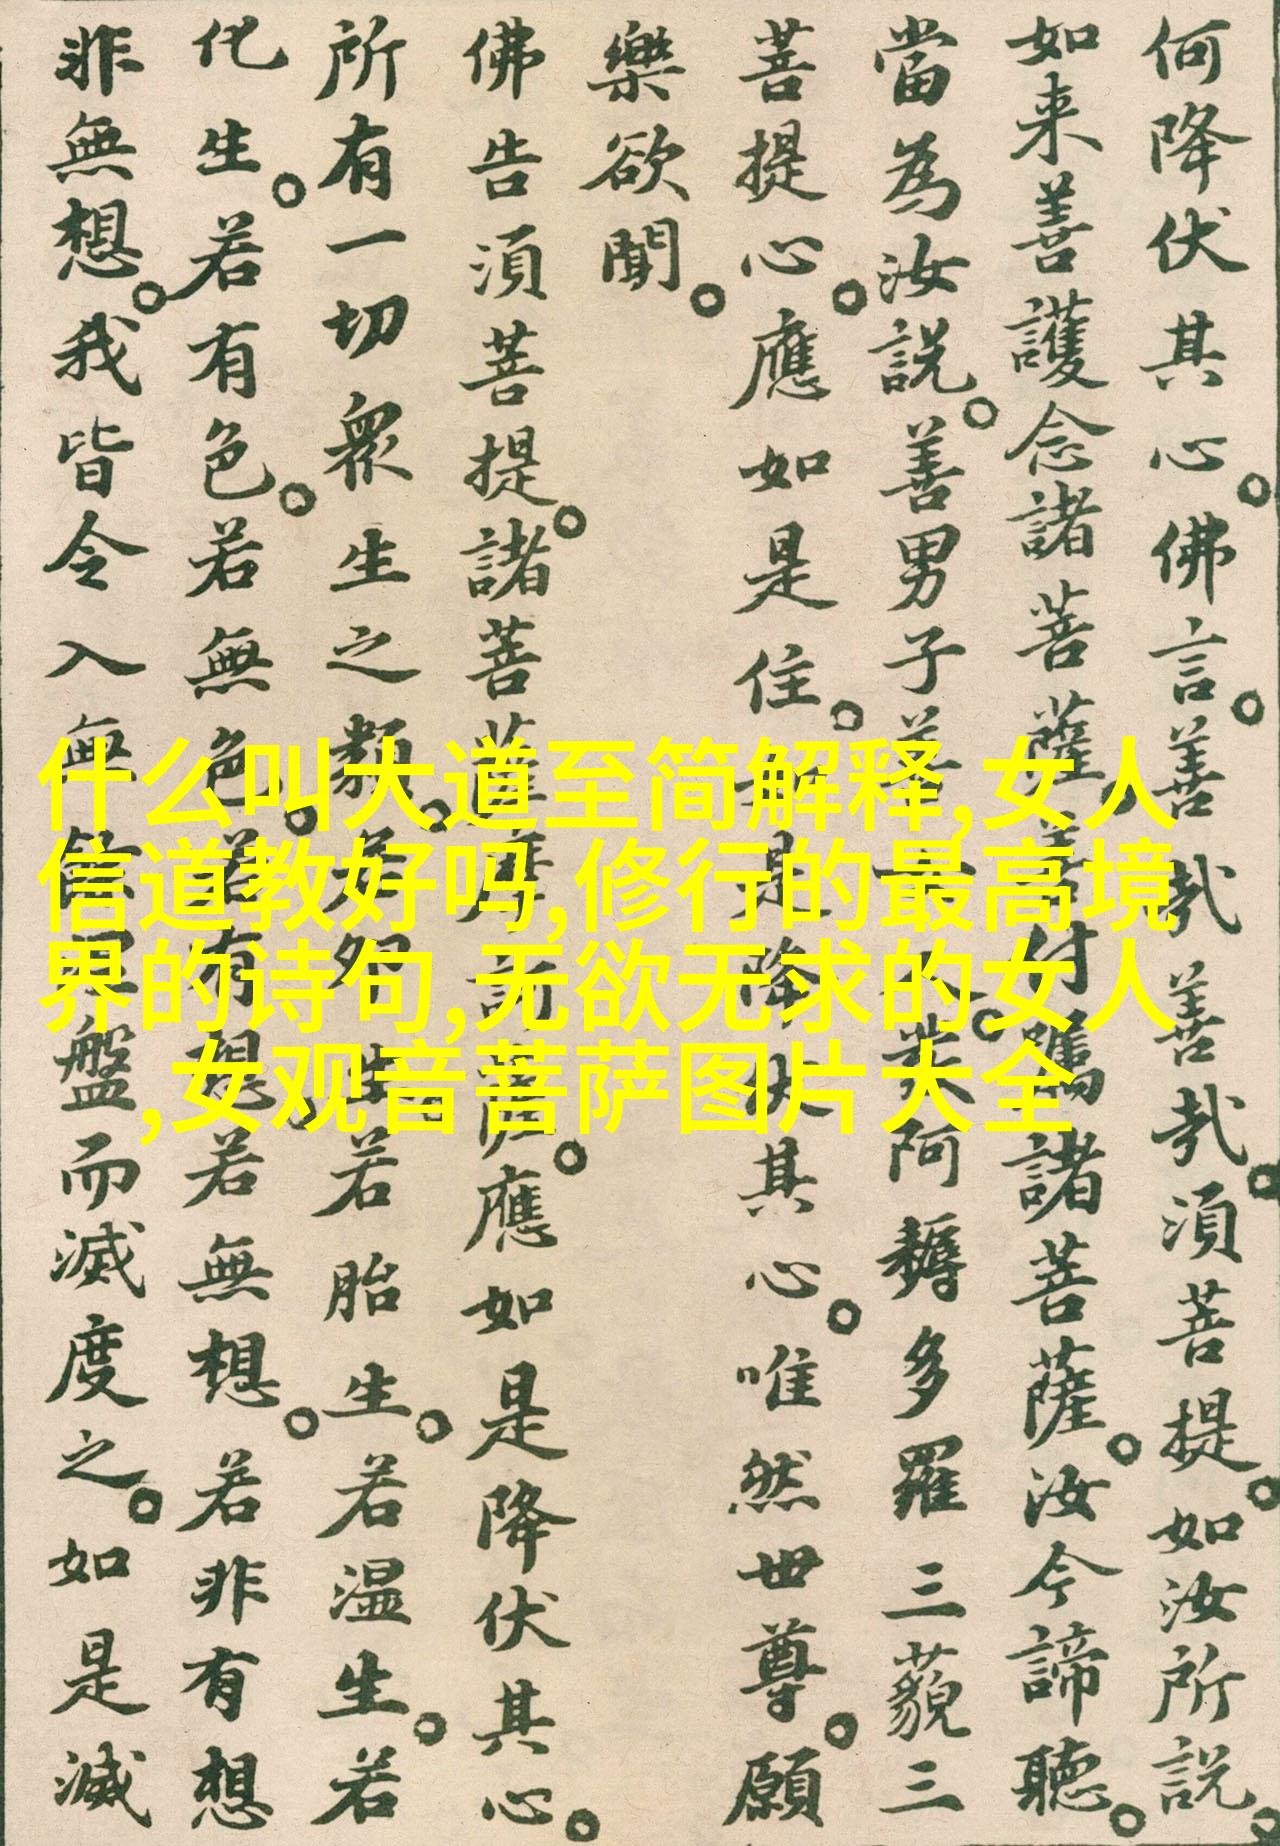 何降伏其心。佛言。善哉善哉。須菩提。如汝所説。
如来善護念諸菩薩。善付囑諸菩薩。汝今諦聽。
當為汝説。善男子善女人。發阿耨多羅三藐三
菩提心。應如是住。如是降伏其心。唯然世尊。願
樂欲聞。
佛告須菩提。諸菩薩摩訶薩。應如是降伏其心。
所有一切衆生之類。若卵生。若胎生。若温生。若
化生。若有色。若無色。若有想。若無想。若非有想
非無想。我皆令入無餘涅盤而滅度之。如是滅
什么叫大道至简解释,女人
信道教好吗,修行的最高境
界的诗句,无欲无求的女人
,女观音菩萨图片大全